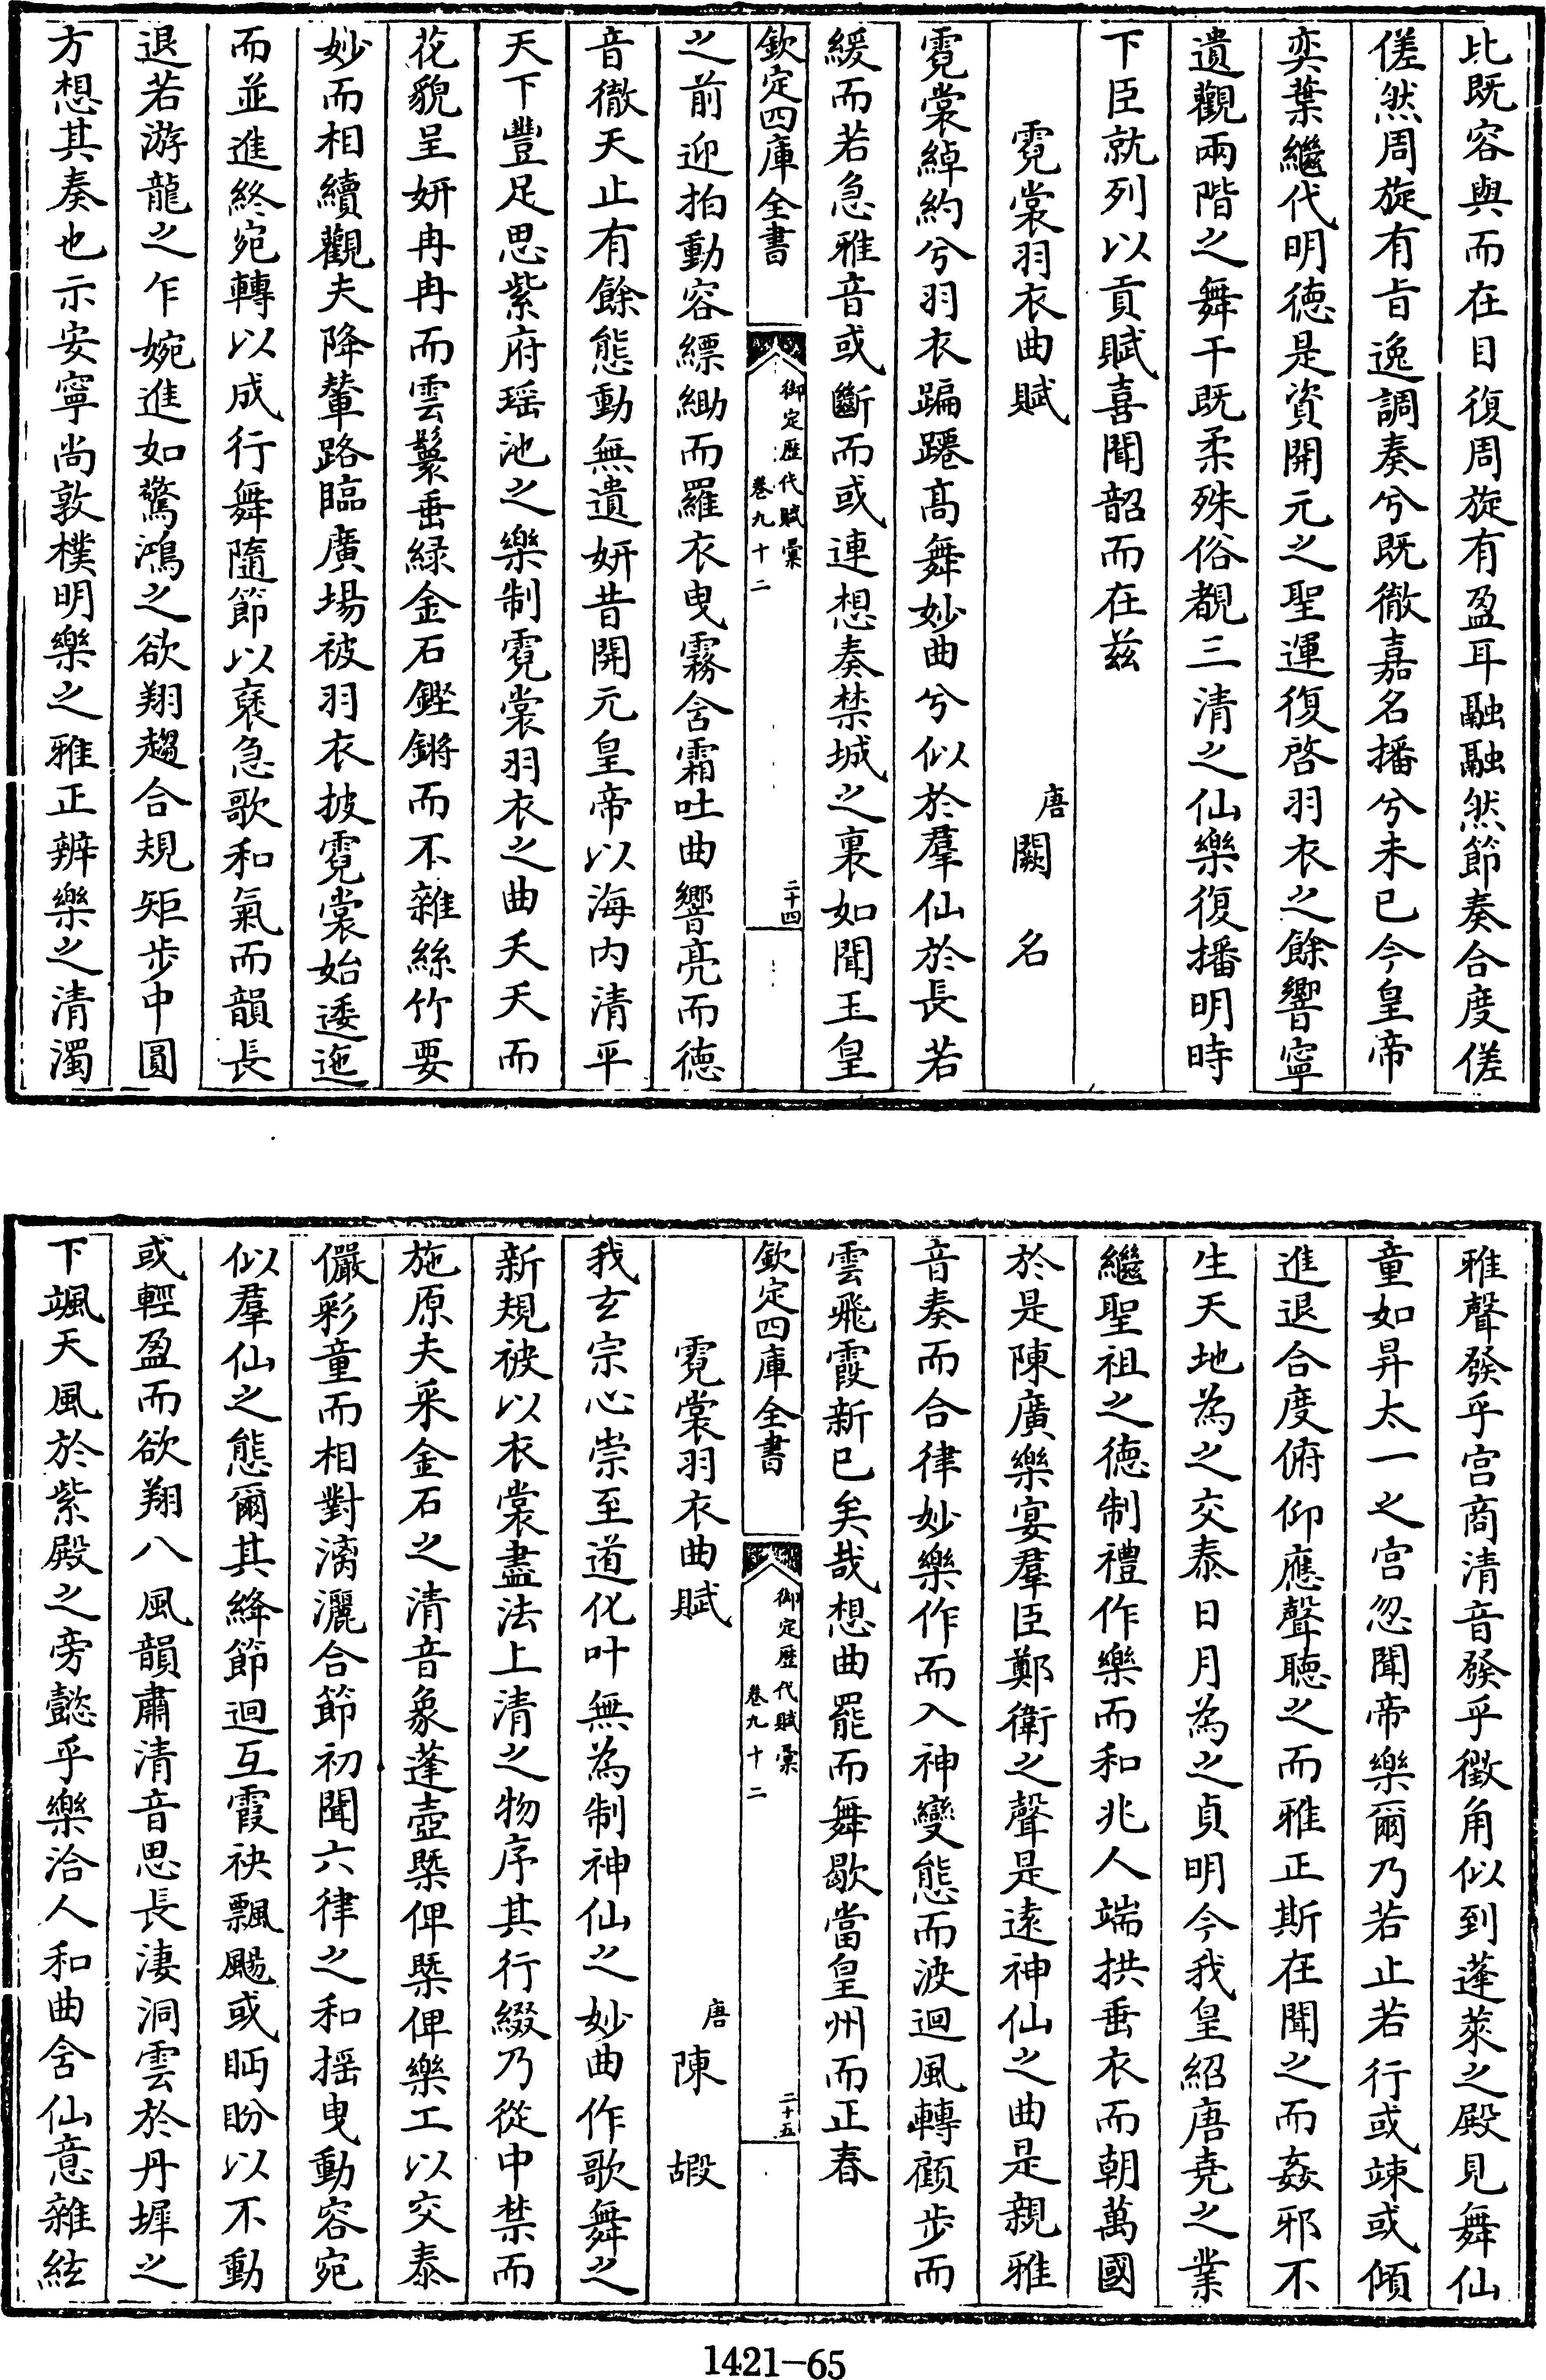 比既容與而在目復周旋有盈耳融融然節奏合度傞
傞然周旋有旨逸調奏兮既徹嘉名播兮未已今皇帝
奕葉繼代明德是資開元之聖運復啓羽衣之餘響寧
遺觀兩階之舞干既柔殊俗覩三清之仙樂復播明時
下臣就列以貢賦喜聞韶而在兹
霓裳羽衣曲賦 唐 闕名
霓裳綽約兮羽衣蹁躚髙舞妙曲兮似於羣仙於長若
緩而若急雅音或斷而或連想奏禁城之裏如聞玉皇
欽定四庫全書 御定歴代賦彙 卷九十二 二十四
之前迎拍動容縹緲而羅衣曳霧含霜吐曲響亮而德
音徹天止有餘態動無遺妍昔開元皇帝以海内清平
天下豐足思紫府瑶池之樂制霓裳羽衣之曲夭夭而
花貌呈妍冉冉而雲鬟垂緑金石鏗鏘而不雜絲竹要
妙而相續觀夫降輦路臨廣場被羽衣披霓裳始逶迤
而並進終宛轉以成行舞隨節以裒急歌和氣而韻長
退若游龍之乍婉進如驚鴻之欲翔趨合規矩步中圓
方想其奏也示安寧尚敦樸明樂之雅正辨樂之清濁
雅聲發乎宫商清音發乎徵角似到蓬萊之殿見舞仙
童如昇太一之宫忽聞帝樂爾乃若止若行或竦或傾
進退合度俯仰應聲聴之而雅正斯在聞之而姦邪不
生天地為之交泰日月為之貞明今我皇紹唐堯之業
繼聖祖之德制禮作樂而和兆人端拱垂衣而朝萬國
於是陳廣樂宴羣臣鄭衛之聲是遠神仙之曲是親雅
音奏而合律妙樂作而入神變態而波迴風轉顧步而
雲飛霞新已矣哉想曲罷而舞歇當皇州而正春
欽定四庫全書 御定歴代賦彙 卷九十二 二十五
霓裳羽衣曲賦 唐 陳嘏
我玄宗心崇至道化叶無為制神仙之妙曲作歌舞之
新規被以衣裳盡法上清之物序其行綴乃從中禁而
施原夫采金石之清音象蓬壺槩俾槩俾樂工以交泰
儼彩童而相對漓灑合節初聞六律之和揺曳動容宛
似羣仙之態爾其絳節迴互霞袂飄颺或眄盼以不動
或輕盈而欲翔八風韻肅清音思長淒洞雲於丹墀之
下颯天風於紫殿之旁懿乎樂洽人和曲含仙意雜絃
1421-65